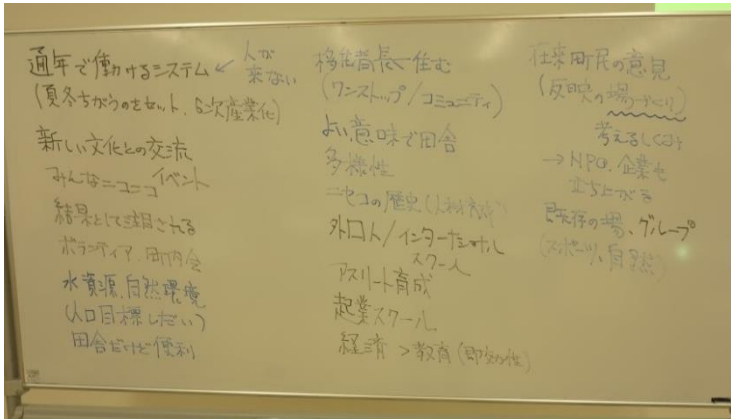 通年で働けるシステム ← 人が来ない
(夏冬ちがうのをセット、6次産業化)
新しい文化との交流
みんなニコニコ イベント
結果として注目される
ボランティア、町内会
水資源、自然環境
(人口目標しだい)
田舎だけど便利
移住者長〜く住む
(ワンストップ/コミュニティ)
よい意味で田舎
多様性
ニセコの歴史(人材育成)
外国人/インターナショナル
スクール
アスリート育成
起業スクール
経済>教育(即効性)
在来町民の意見
(反映の場づくり)
考えるしくみ
→NPO、企業も
立ち上がる
既存の場、グループ
(スポーツ、自然)